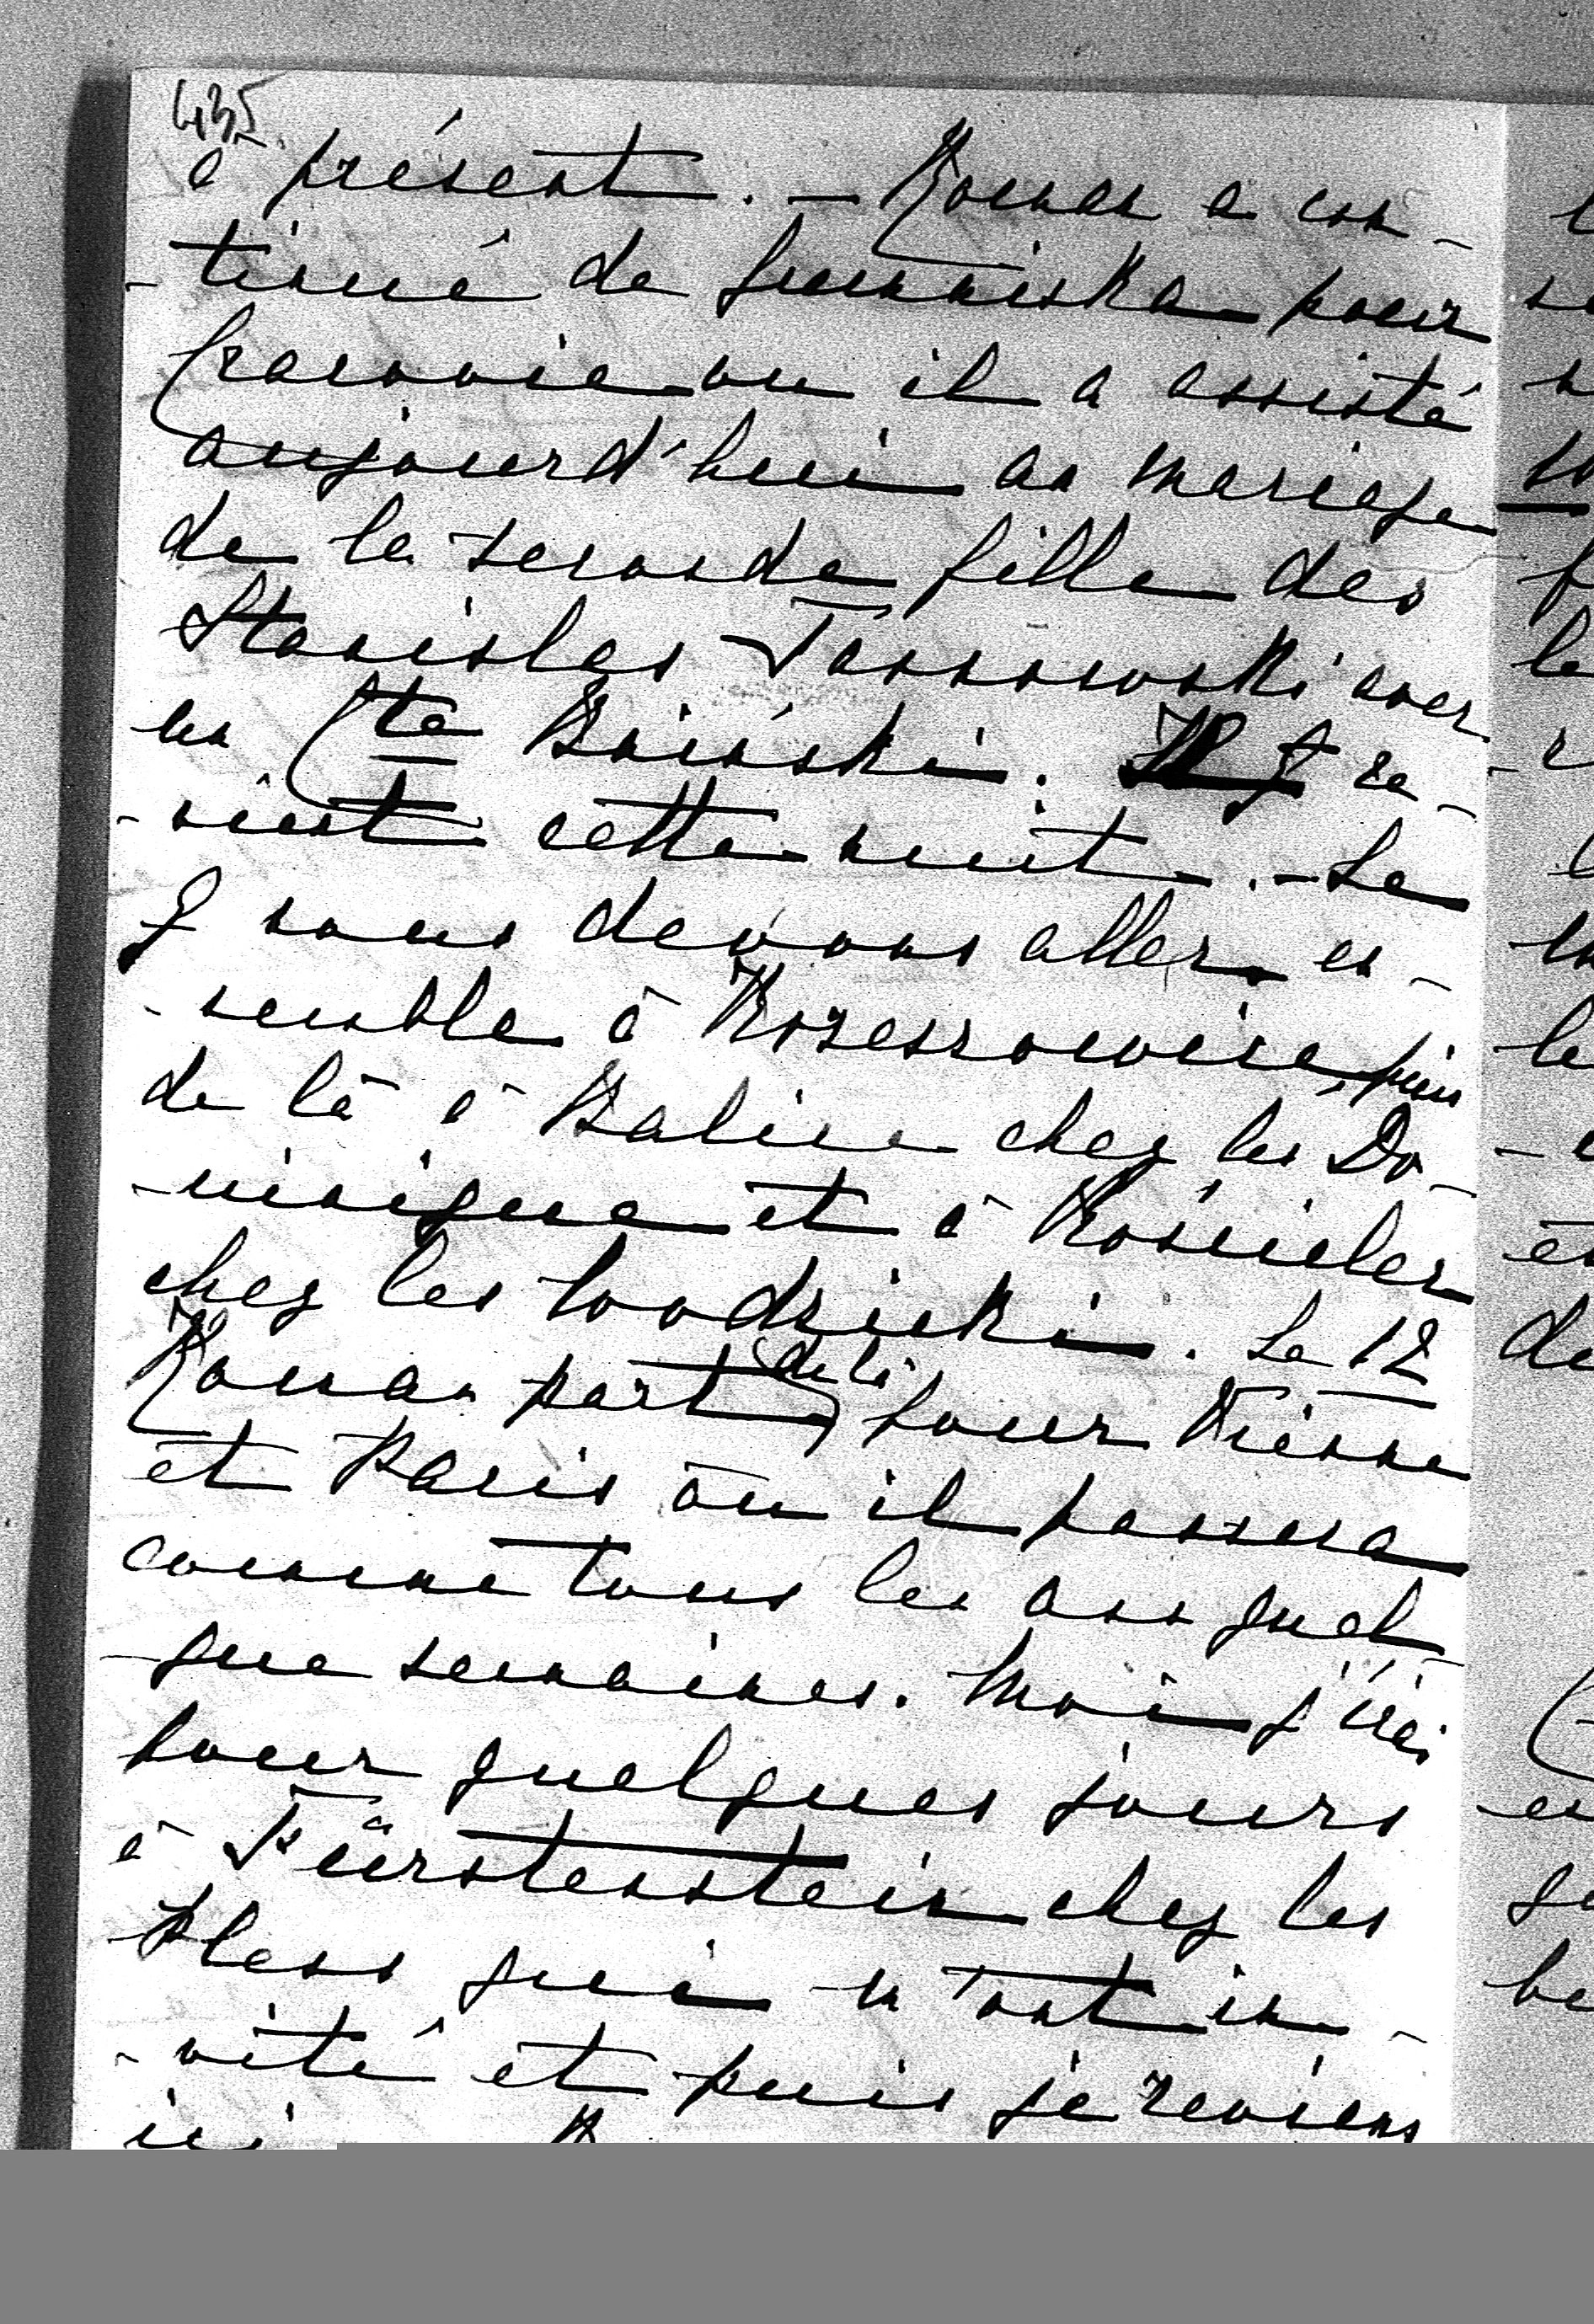 435.
à présent. – Roman a con-
-tinué de Gumniska pour
Cracovie ou il a assisté
aujourd'hui au mariage
de la seconde fille des
Stanislas Tarnowski avec
un Cte Bniński. Il re-
-vient cette nuit. – Le
9 nous devons aller en-
-semble à Krzeszowice, puis
de là à Balice chez les Do-
-minique et à Kościelec
chez les Wodzicki. Le 12
Roman part de là pour Vienne
et Paris où il passera
comme tous les ans quel-
-que semaines. Moi j'irai
pour quelques jours
à Fürstenstein chez les
Pless qui m'ont in-
-vité et puis je reviens
ici